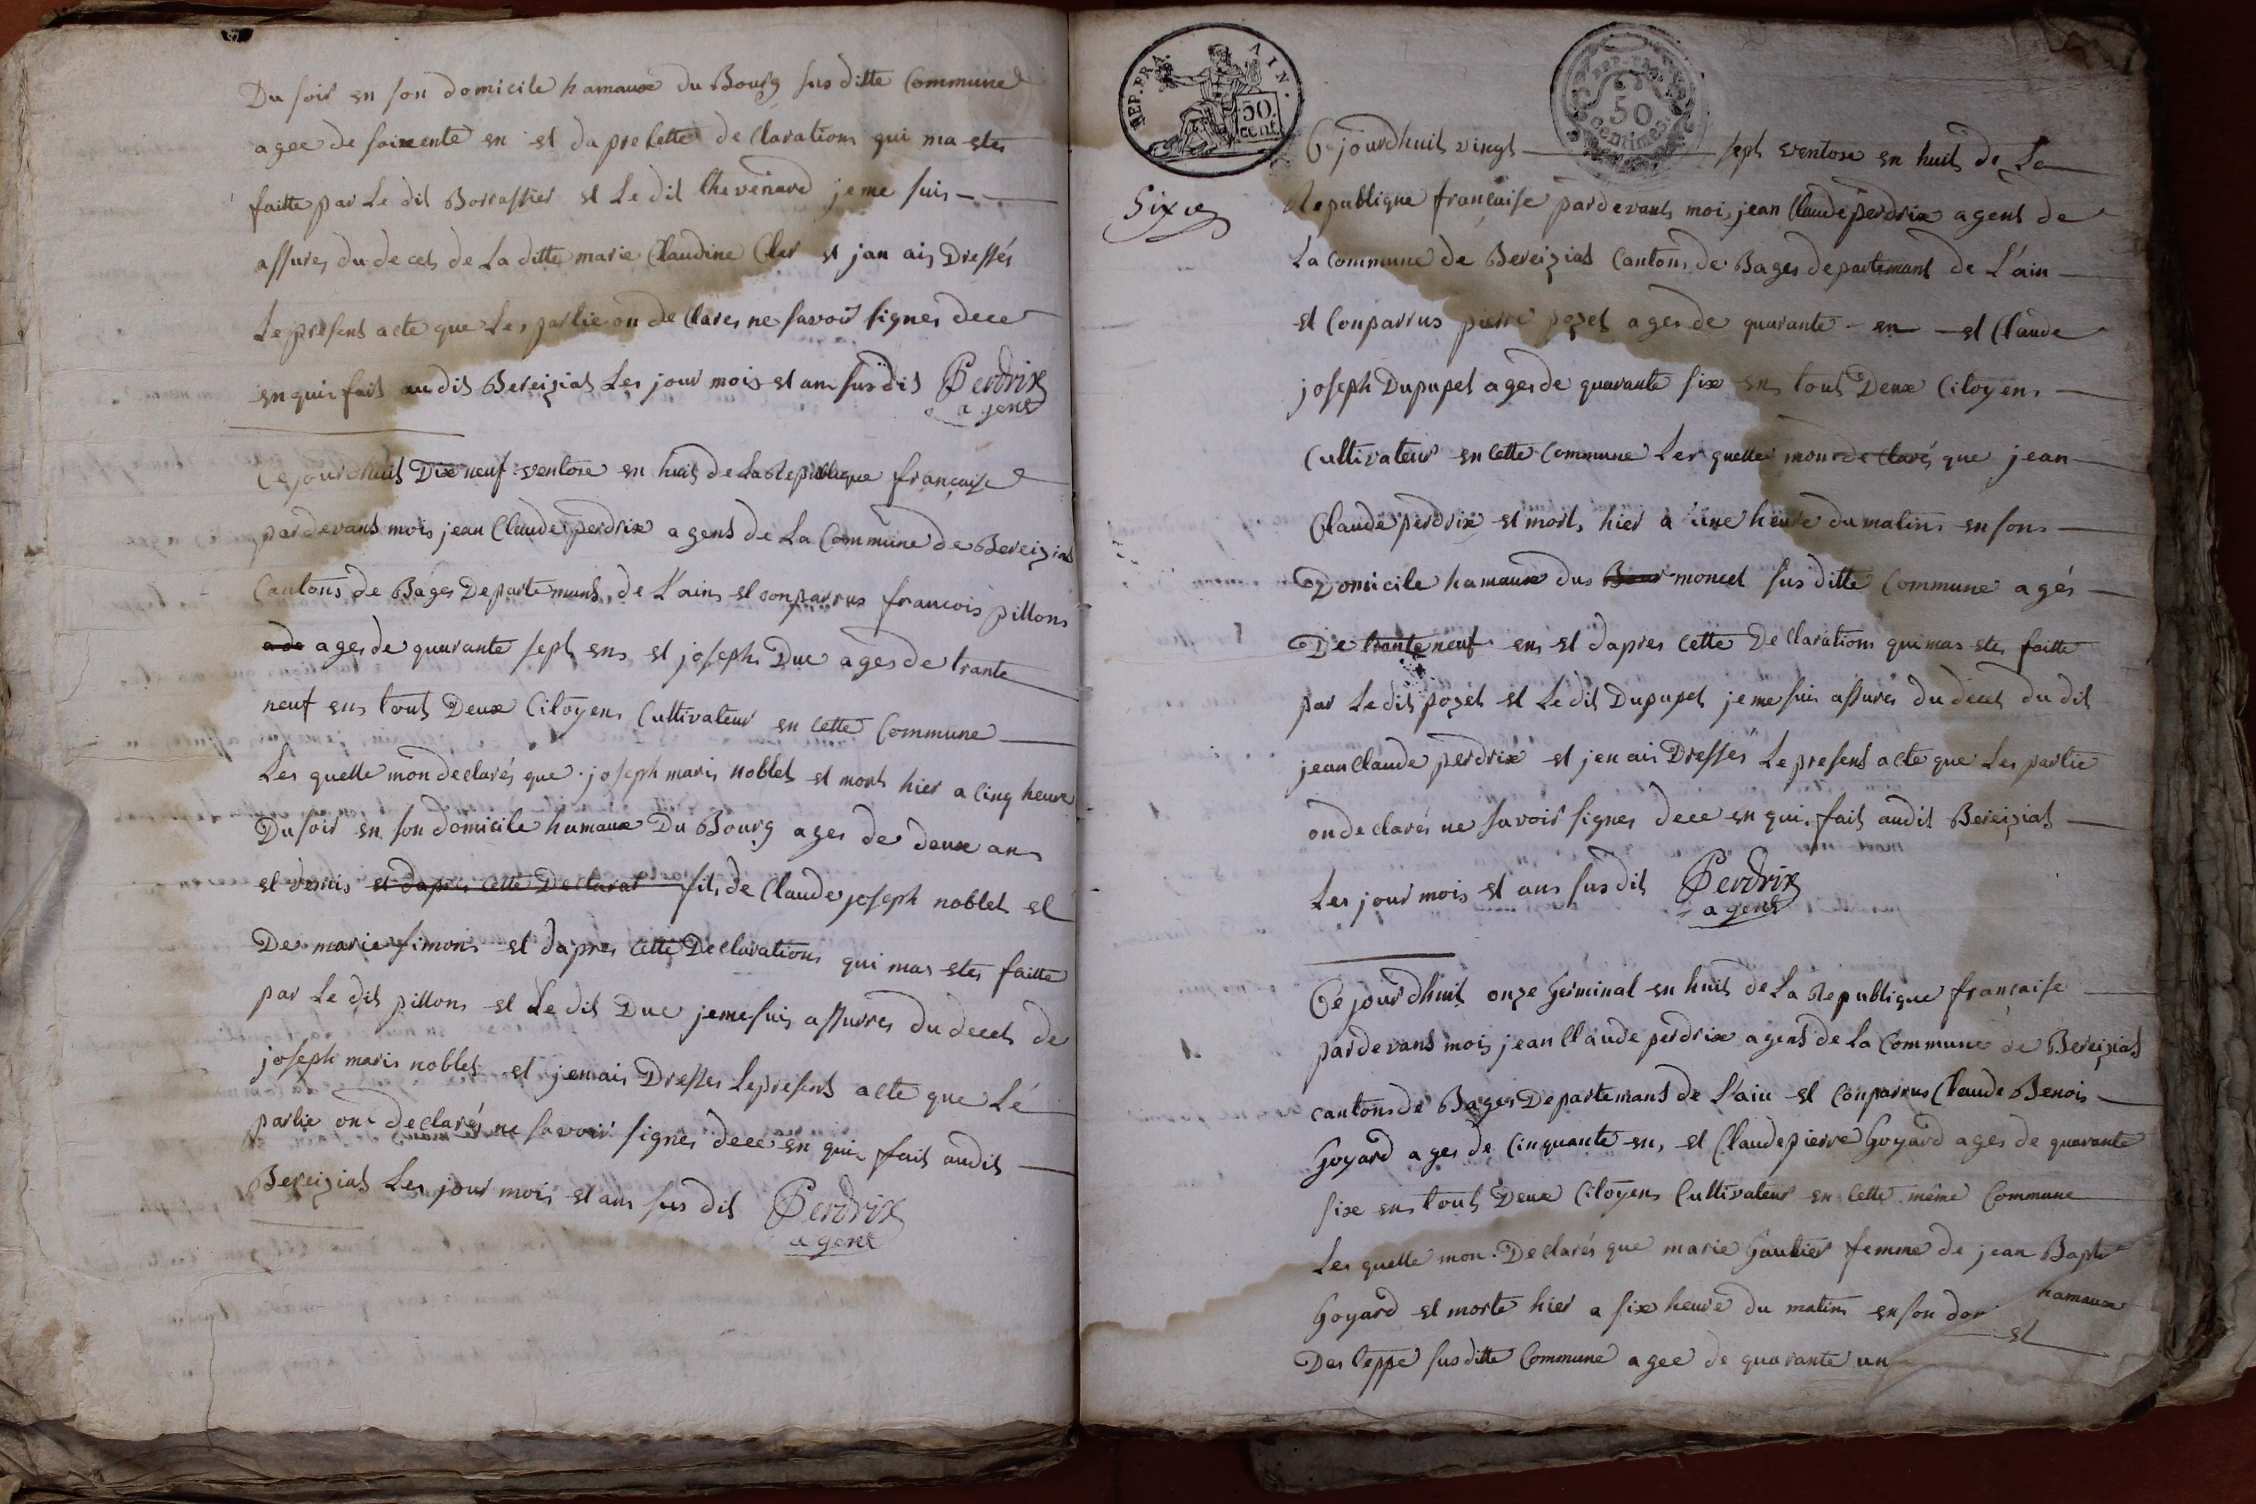 Du soir en son domicile hamaux du Bourg sus ditte Commune
agee de soixente en et da pre cette de Clarations qui ma etes
faitte par Le dit Borrassier et Le dit Thevenard je me suis
assures du deces de La ditte marie Claudine Cler et jan ais Dressés
Le present acte que Les partie on de Clares ne savoir signes dece
en quis fait au dit Bereiziat Les jour mois et ans sus dit Perdrix
agent
Ce jourdhuit Dix neuf ventose en huit de La Republique française
pardevant mois jean Claude perdrix agent de La Commune de Bereiziat
Cantons de Bages Departemant de L'ains et conparrus francois pillons
a de ages de quarante sept ens et joseph Duc ages de trante
neuf ens tout Deux Citoyens Cultivateur en cette Commune
Les quelle mon declarés que joseph maris noblet et mort hier a cinq heure
Du soir en son domicile hamaux Du Bourg ages de deux ans
et demis et dapres cette Declarat fils de Claude joseph noblet et
De marie simons et dapres cette Declarations qui mas etes faitte
par Le dit pillons et Le dit Duc jeme suis assurres du decet de
joseph maris noblet et jemais Dresses Le present acte que Lé
partie on declarés ne savoir signes dece en quis fait audit
Bereiziat Les jour mois et ans sus dit Perdrix
agent
REP. FRA. AIN.
50 cent.
REP. FRA.
50
centimes
Sixie
Ce jourdhuit vingt sept ventose en huit de La
Republique française pardevant mois jean Claude perdrix agent de
La commune de Bereiziat Cantons de Bages departemant de L'ain
et Conparrus pierre pozet ages de quarante en et Claude
joseph Dupupet ages de quarante six ens tout Deux Citoyens
Cultivateur en cette Commune Les quelle mon de clarés que jean
Claude perdrix et mort hier a une heure du matins en sons
Domicile hamaux dus Bour moncet sus ditte Commune agés
De trante neuf ens et dapres cette De Clarations qui mas etes faitte
par Le dit pozet et Le dit Dupupet je me suis assures du decet du dit
jean Claude perdrix et jen ais Dresses Le present acte que Les partie
on de clarés ne savoir signes dece en quis fait audit Bereiziat
Les jour mois et ans sus dit Perdrix
agent
Ce jourdhuit onze Germinal en huit de La Republique française
pardevant mois jean Claude perdrix agent de La Commune de Bereiziat
cantons de Bages Departemant de L'ain et Conparrus Claude Benois
Goyard ages de Cinquante en, et Claude pierre Goyard ages de quarante
six ens tout Deux Citoyens Cultivateur en Cette même Commune
Les quelle mon Declarés que marie Gautier femme de jean Bapt
Goyard et morte hier a six heure du matins en son dom hamaux
Des Ceppe sus ditte Commune agee de quarante un et